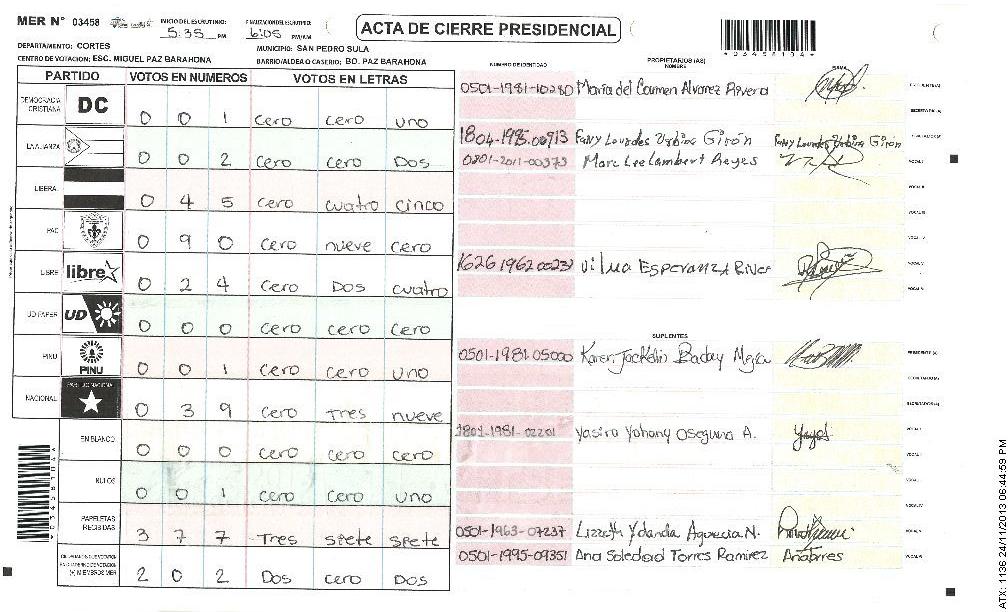 MER N° 03458
INICIO DEL ESCRUTINIO:
5:35 PM
FINALIZACION DEL ESCRUTINIO:
6:05 PM/AM
ACTA DE CIERRE PRESIDENCIAL
*03458104*
DEPARTAMENTO: CORTES
MUNICIPIO: SAN PEDRO SULA
CENTRO DE VOTACION: ESC. MIGUEL PAZ BARAHONA
BARRIO/ALDEA O CASERIO: BO. PAZ BARAHONA
PARTIDO VOTOS EN NUMEROS VOTOS EN LETRAS
DEMOCRACIA CRISTIANA DC 0 0 1 cero cero uno
LA ALIANZA 0 0 2 cero cero Dos
LIBERAL 0 4 5 cero cuatro cinco
PAC 0 9 0 cero nueve cero
LIBRE libre 0 2 4 cero Dos cuatro
UD PAPER UD 0 0 0 cero cero cero
PINU PINU 0 0 1 cero cero uno
NACIONAL PARTIDO NACIONAL 0 3 9 cero Tres nueve
EN BLANCO 0 0 0 cero cero cero
NULOS 0 0 1 cero cero uno
PAPELETAS RECIBIDAS 3 7 7 Tres siete siete
(+) MIEMBROS MER 2 0 2 Dos cero Dos
NUMERO DE IDENTIDAD
PROPIETARIOS (AS)
NOMBRE
FIRMA
0501-1981-10280 Maria del Carmen Alvarez Rivera
1804-1995-00913 Fany Lourdes Urbina Girón Fany Lourdes Urbina Girón
0801-2011-00373 Marc Lee Lambert Reyes
VOCAL I
VOCAL II
VOCAL III
VOCAL IV
1626 1962 00231 Vilma Esperanza River
VOCAL V
VOCAL VI
SUPLENTES
0501-1981-05000 Karen Jackelin Baday Mejia
PRESIDENTE (A)
SECRETARIO (A)
ESCRUTADOR (A)
1801-1981-02201 Yasira Yohany Oseguera A.
VOCAL I
VOCAL II
VOCAL III
VOCAL IV
0501-1963-07237 Lizzeth Yolanda Aguricia N.
VOCAL V
0501-1995-09351 Ana Soledad Torres Ramirez AnaTorres
VOCAL VI
*03458104*
ATX: 1136 24/11/2013 06:44:59 PM